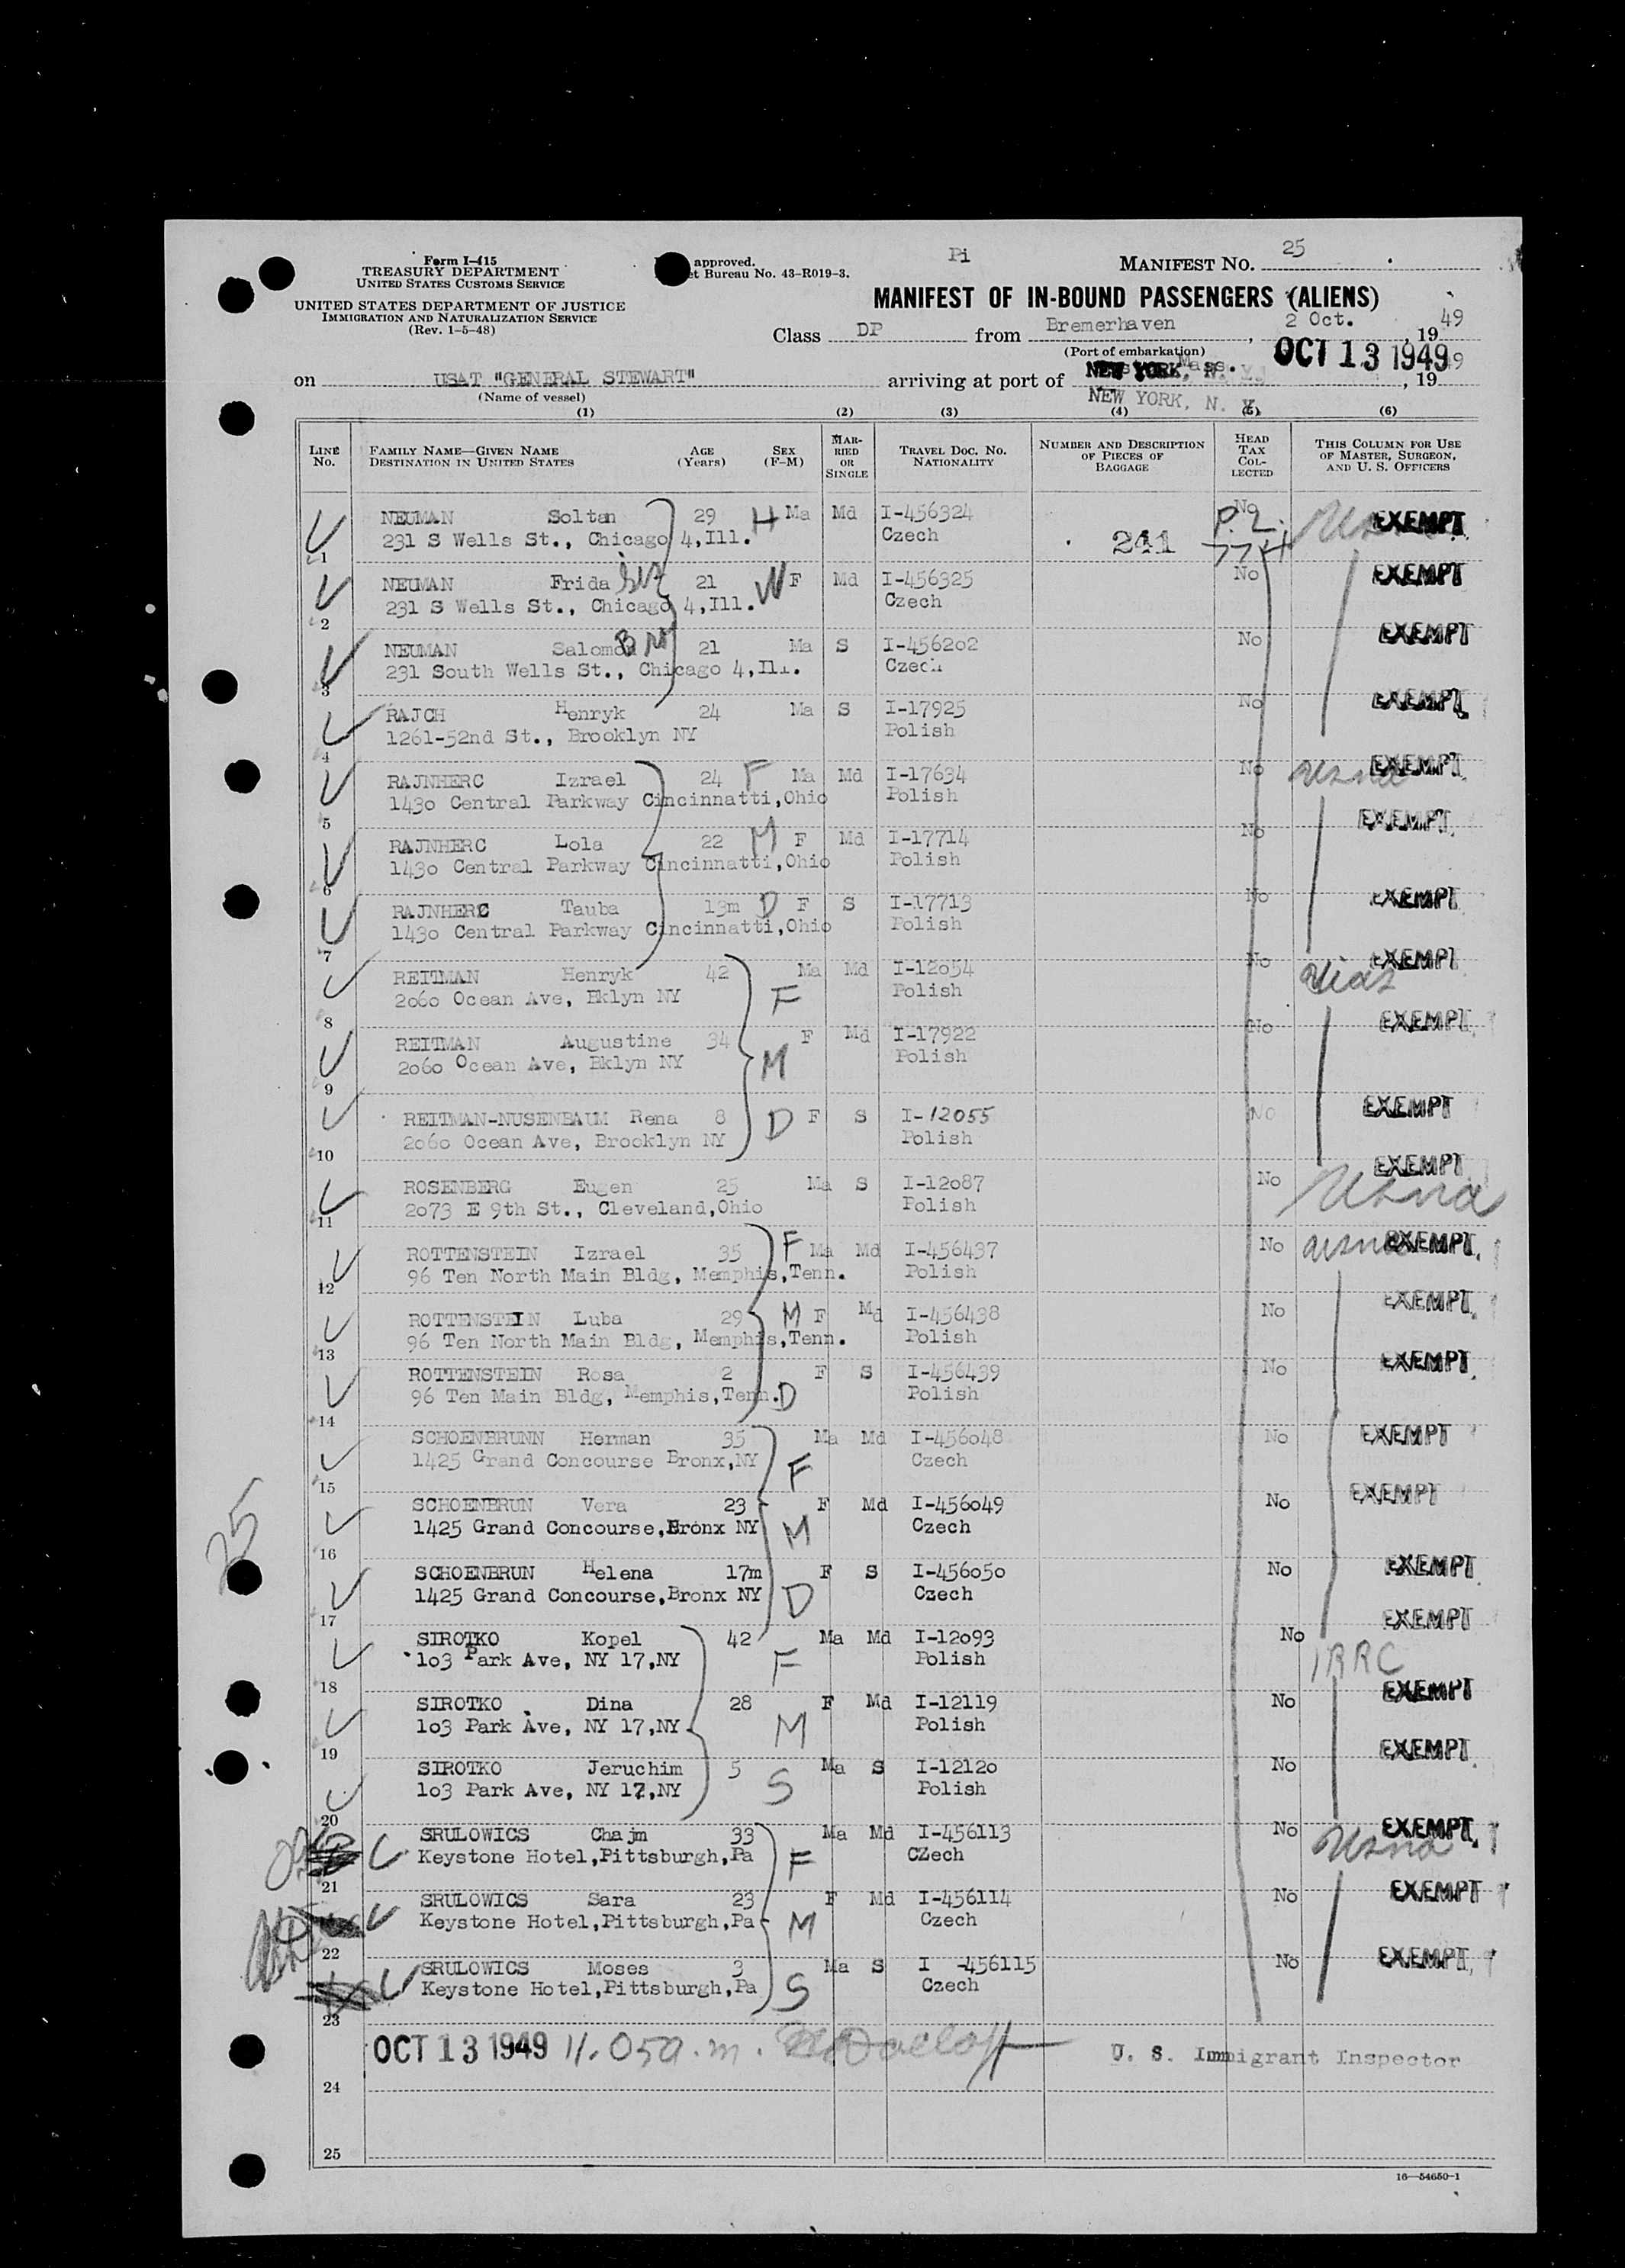 Form I-415
TREASURY DEPARTMENT
UNITED STATES CUSTOMS SERVICE
UNITED STATES DEPARTMENT OF JUSTICE
IMMIGRATION AND NATURALIZATION SERVICE
(Rev. 1-5-48)
approved.
Bureau No. 43-R019-3.
Pi
MANIFEST NO. 25
MANIFEST OF IN-BOUND PASSENGERS (ALIENS)
Class DP from Bremerhaven, 2 Oct., 1949
(Port of embarkation)
OCT 13 1949
on USAT "GENERAL STEWART" arriving at port of NEW YORK, N. Y. Mass. , 19 49
(Name of vessel)
NEW YORK, N. Y.
(1) (2) (3) (4) (5) (6)
LINE NO. FAMILY NAME—GIVEN NAME DESTINATION IN UNITED STATES AGE (Years) SEX (F-M) MARRIED OR SINGLE TRAVEL DOC. NO. NATIONALITY NUMBER AND DESCRIPTION OF PIECES OF BAGGAGE HEAD TAX COLLECTED THIS COLUMN FOR USE OF MASTER, SURGEON, AND U. S. OFFICERS
NEUMAN Soltan 29 H Ma Md I-456324 No EXEMPT
1 231 S Wells St., Chicago 4,Ill. Czech 241 P.L. 774
NEUMAN Frida 21 W F Md I-456325 No EXEMPT
2 231 S Wells St., Chicago 4,Ill. Czech
NEUMAN Salomon 21 Ma S I-456202 No EXEMPT
3 231 South Wells St., Chicago 4,Ill. Czech
RAJCH Henryk 24 Ma S I-17925 No EXEMPT
4 1261-52nd St., Brooklyn NY Polish
RAJNHERC Izrael 24 F Ma Md I-17634 No usna EXEMPT
5 1430 Central Parkway Cincinnatti,Ohio Polish
RAJNHERC Lola 22 M F Md I-17714 No EXEMPT
6 1430 Central Parkway Cincinnatti,Ohio Polish
RAJNHERC Tauba 13m D F S I-17713 No EXEMPT
7 1430 Central Parkway Cincinnatti,Ohio Polish
REITMAN Henryk 42 Ma Md I-12054 No EXEMPT
8 2060 Ocean Ave, Bklyn NY F Polish Hias
REITMAN Augustine 34 F Md I-17922 No EXEMPT
9 2060 Ocean Ave, Bklyn NY M Polish
REITMAN-NUSENBAUM Rena 8 D F S I-12055 NO EXEMPT
10 2060 Ocean Ave, Brooklyn NY Polish
ROSENBERG Eugen 25 Ma S I-12087 No EXEMPT
11 2073 E 9th St., Cleveland,Ohio Polish Usna
ROTTENSTEIN Izrael 35 F Ma Md I-456437 No usna EXEMPT
12 96 Ten North Main Bldg, Memphis,Tenn. Polish
ROTTENSTEIN Luba 29 M F Md I-456438 No EXEMPT
13 96 Ten North Main Bldg, Memphis,Tenn. Polish
ROTTENSTEIN Rosa 2 F S I-456439 No EXEMPT
14 96 Ten Main Bldg, Memphis,Tenn. D Polish
SCHOENBRUNN Herman 35 Ma Md I-456048 No EXEMPT
15 1425 Grand Concourse Bronx,NY F Czech
SCHOENBRUN Vera 23 F Md I-456049 No EXEMPT
16 1425 Grand Concourse,Bronx NY M Czech
25
SCHOENBRUN Helena 17m F S I-456050 No EXEMPT
17 1425 Grand Concourse,Bronx NY D Czech
SIROTKO Kopel 42 Ma Md I-12093 No EXEMPT
18 103 Park Ave, NY 17,NY F Polish IRRC
SIROTKO Dina 28 F Md I-12119 No EXEMPT
19 103 Park Ave, NY 17,NY M Polish
SIROTKO Jeruchim 5 Ma S I-12120 No EXEMPT
20 103 Park Ave, NY 17,NY S Polish
SRULOWICS Chajm 33 Ma Md I-456113 No EXEMPT
21 Keystone Hotel,Pittsburgh,Pa F CZech Usna
SRULOWICS Sara 23 F Md I-456114 No EXEMPT
22 Keystone Hotel,Pittsburgh,Pa M Czech
SRULOWICS Moses 3 Ma S I -456115 No EXEMPT
23 Keystone Hotel,Pittsburgh,Pa S Czech
OCT 13 1949 11.05a.m. U. S. Immigrant Inspector
24
25
16—54650-1